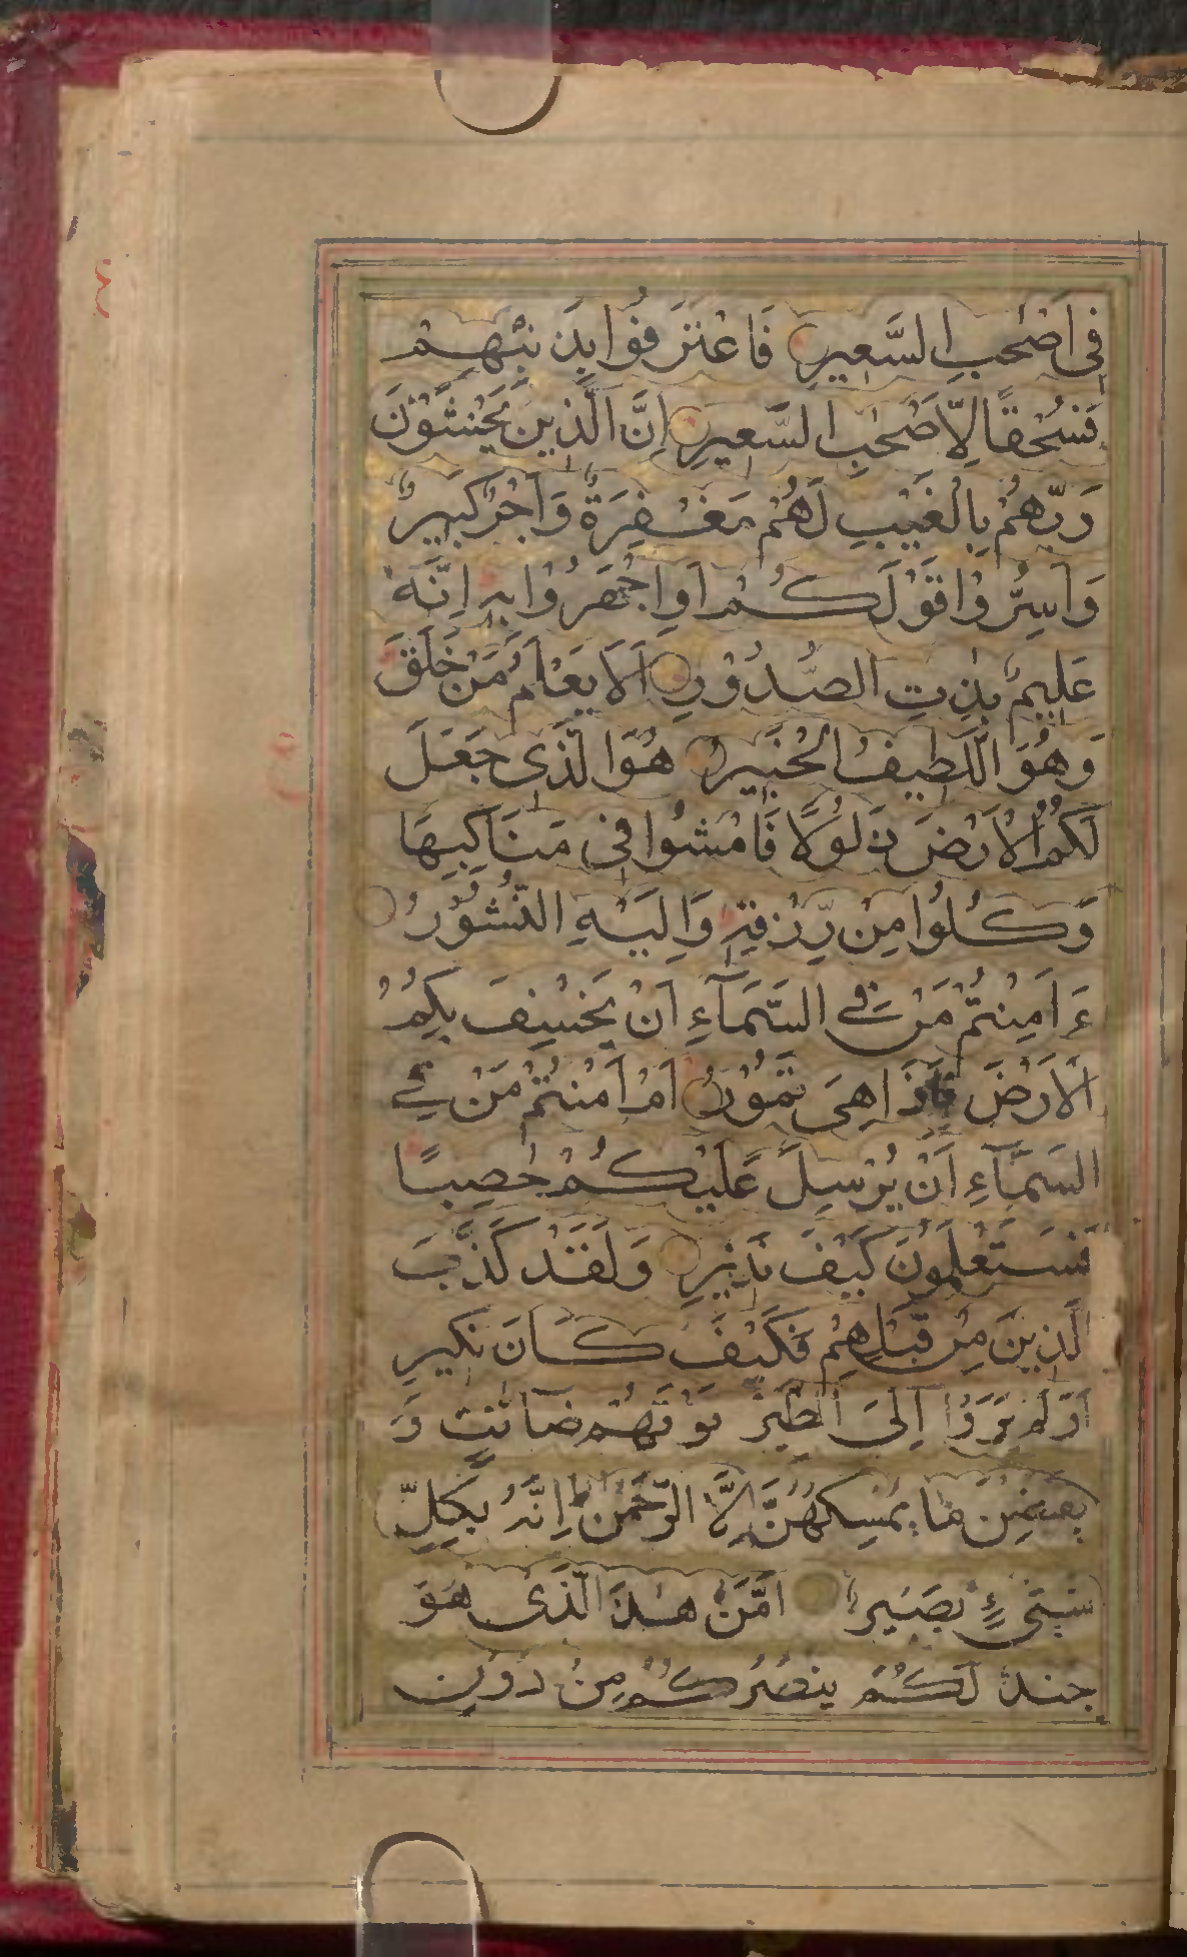 فِي اَصْحٰبِ السَّعِيرِ فَاعْتَرَفُوا بِذَنْبِهِمْ
فَسُحْقًا لِاَصْحٰبِ السَّعِيرِ اِنَّ الَّذِينَ يَخْشَوْنَ
رَبَّهُمْ بِالْغَيْبِ لَهُمْ مَغْفِرَةٌ وَاَجْرٌ كَبِيرٌ
وَاَسِرُّوْا قَوْلَكُمْ اَوِ اجْهَرُوْا بِهٖ اِنَّهٗ
عَلِيمٌ بِذٰتِ الصُّدُوْرِ اَلَا يَعْلَمُ مَنْ خَلَقَ
وَهُوَ اللَّطِيفُ الْخَبِيرُ هُوَ الَّذِى جَعَلَ
لَكُمُ الْاَرْضَ ذَلُوْلًا فَامْشُوا فِى مَنَاكِبِهَا
وَكُلُوا مِنْ رِّزْقِهٖ وَاِلَيْهِ النُّشُوْرُ
ءَاَمِنْتُمْ مَنْ فِى السَّمَآءِ اَنْ يَخْسِفَ بِكُمُ
الْاَرْضَ فَاِذَا هِىَ تَمُوْرُ اَمْ اَمِنْتُمْ مَنْ فِى
السَّمَآءِ اَنْ يُرْسِلَ عَلَيْكُمْ حَاصِبًا
فَسَتَعْلَمُوْنَ كَيْفَ نَذِيْرِ وَلَقَدْ كَذَّبَ
الَّذِيْنَ مِنْ قَبْلِهِمْ فَكَيْفَ كَانَ نَكِيرِ
اَوَلَمْ يَرَوْا اِلَى الطَّيْرِ فَوْقَهُمْ صَآفّٰتٍ وَ
يَقْبِضْنَ مَا يُمْسِكُهُنَّ اِلَّا الرَّحْمٰنُ اِنَّهٗ بِكُلِّ
شَىْءٍ بَصِيرٌ اَمَّنْ هٰذَا الَّذِى هُوَ
جُنْدٌ لَكُمْ يَنْصُرُكُمْ مِنْ دُوْنِ